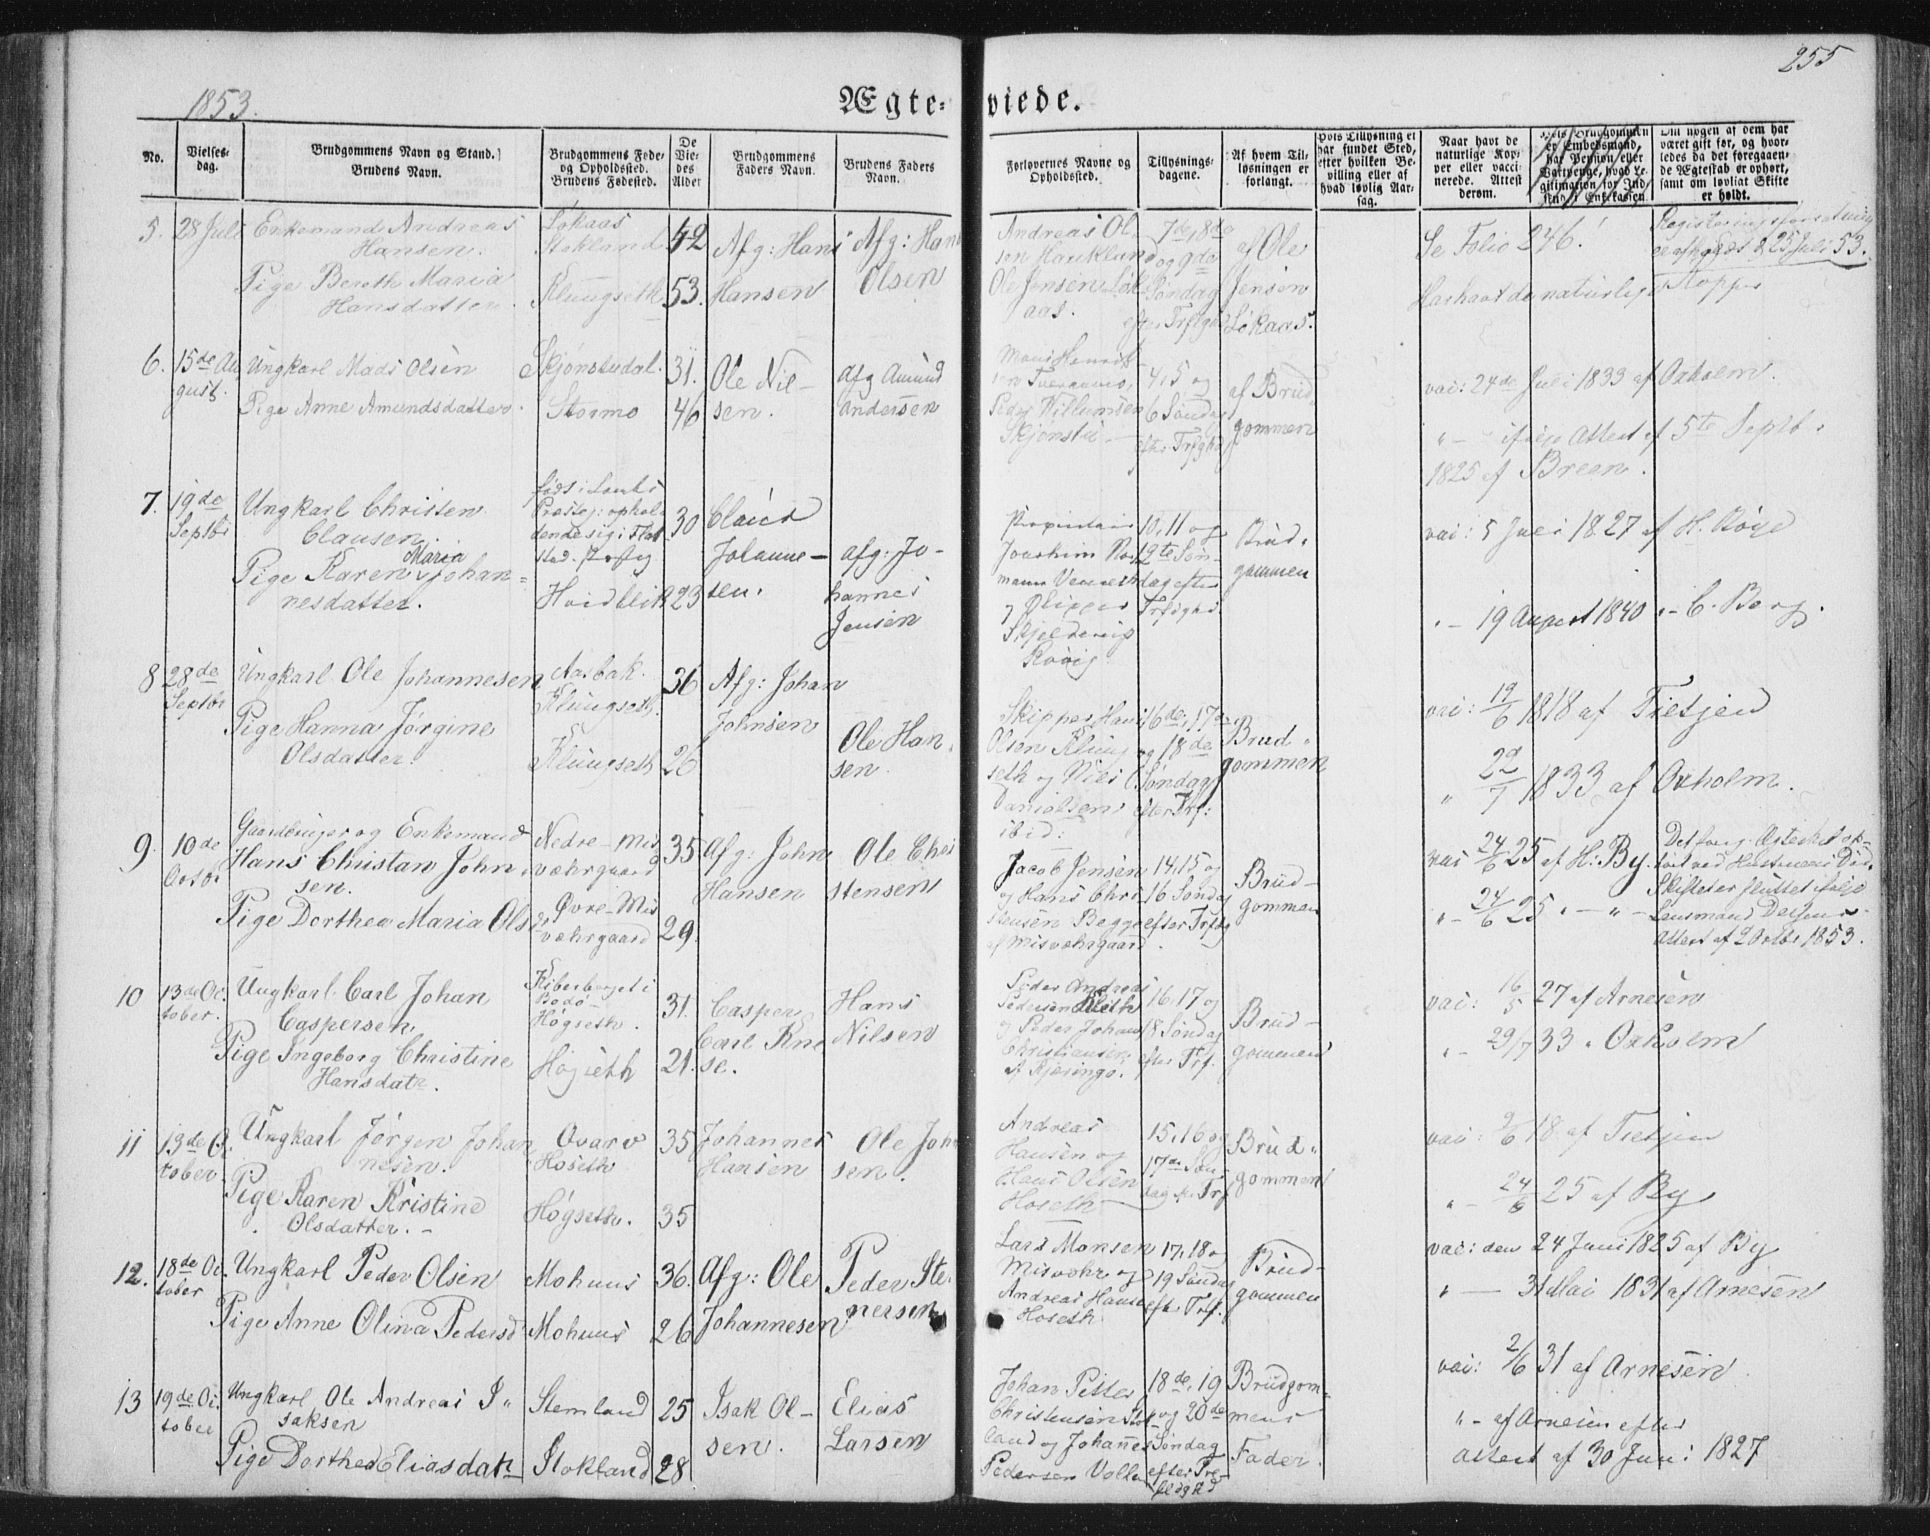 1853.
Ægte-
viede.
255
No.
Vielses-
dag.
Brudgommens Navn og Stand.
Brudens Navn.
Brudgommens Føde-
og Opholdssted.
Brudens Fødested.
De
Vie-
des
Alder
Brudgommens
Faders Navn.
Brudens Faders
Navn.
Forlovernes Navne og
Opholdssted.
Tillysnings-
dagene.
Af hvem Til-
lysningen er
forlangt.
Hvis Tillysning ei
har fundet Sted,
efter hvilken Be-
villing eller af
hvad lovlig Aar-
sag.
Naar havt de
naturlige Kop-
per eller vacci-
nerede. Attest
derom.
Hvis Brudgommen
er Embedsmand,
har Pension eller
Vartpenge, hvad Le-
gitimation for Ind-
skud i Enkekassen.
Om nogen af dem har
været gift før, og hvor-
ledes da det foregaaen-
de Ægteskab er ophørt,
samt om lovligt Skifte
er holdt.
5. 28 Juli
Enkemand Andreas
Hansen.
Pige Bereth Maria
Hansdatter.
Løkaas
Stokland
Klungseth
42
53.
Afg: Hans
Hansen
Afg: Hans
Olsen
Andreas Ol-
sen Hauklund
Ole Jensen Løk-
aas.
7de, 8de
og 9de
Søndag
efter Trfghd
af Ole
Jensen
Løkaas.
Se Folio 246.
Har havt de naturlige Kopper
25 Juli 53.
6. 15de Au-
gust.
Ungkarl Mads Olsen
Pige Anne Amundsdatter.
Skjønstudal.
Stormo
31.
46
Ole Nil-
sen.
Afg Amund
Andersen
Peder Willumsen
Skjønstu
4, 5 og
6 Søndag
efter Trfghd
af Brud-
gommen
vac: 24de Juli 1833 af Oxholm.
" - ifølge Attest af 5te Septb.
1825 af Breen.
7. 19de
Septbr
Ungkarl Christen
Clausen.
Pige Karen Maria Johan-
nesdatter.
Hvidblik
30
23
Claus
Johanne-
sen.
Afg: Jo-
hannes
Jensen
Skjelderup
Røvig
10, 11 og
12te Søn-
dag efter
Trfoghd.
Brud-
gommen
vac: 5 Juli 1827 af H. Bøye
" - 19 August 1840 " - C. Borg.
8 28de
Septbr
Ungkarl Ole Johannesen
Pige Hanna Jørgine
Olsdatter.
Aasbak.
Klungseth.
Klungseth
36
26
Afg: Johan
Johnsen
Ole Han-
sen.
Skipper Hans
Olsen Klung-
seth og Niels
Danielsen
ibid:
16de, 17de
og 18de
Søndag
efter Trf:
Brud-
gommen
vac: 19/6 1818 af Tietjen
" 29/7 1833 af Oxholm.
9. 10de
Octbr
Gaardbruger og Enkemand
Hans Christan John-
sen.
Pige Dorthea Maria Ols
Nedre-Mis-
væhrgaard
Øvre-Mis-
væhrgaard
35.
29.
Afg: John
Hansen
Ole Chri
stensen
Jacob Jensen
og Hans Chri-
stensen Begge
af Misvæhrgaard.
14, 15 og
16 Søndag
efter Trfog
Brud-
gommen
vac 24/6 25 af H: By.
" - 24/6 25 " - " -
Skiftet er sluttet ifølge
Lensmand
Attest af 2 Octbr 1853.
10 13de Oc-
tober.
Ungkarl Carl Johan
Caspersen
Pige Ingeborg Christine
Hansdatr.
Bodø
Høgseth.
Høgseth
31.
21.
Casper
Carl Rne
se.
Hans
Nilsen
Peder Andreas
Pedersen
og Peder Johan
Christiansen
af Kjæringø.
16, 17 og
18 Søndag
efter Trf.
Brud-
gommen
vac: 16/5 27 af Arnesen
" - 29/7 33 " Oxholm
11 13de Oc-
tober
Ungkarl Jørgen Johan
nesen.
Pige Karen Kristine
Olsdatter.
Qvarv
Hoseth
Høgseth.
35
35
Johannes
Hansen
Ole John
sen.
Andreas
Hansen og
Hans Olsen
Hoseth
15, 16 og
17de Søn-
dag e. Trf
Brud-
gommen
vac: 2/6 18 af Tietjen
" - 24/6 25 af By
12. 18de Oc-
tober
Ungkarl Peder Olsen
Pige Anne Olina Pedersd
Mohuus
Mohuus
36.
26
Afg: Ole
Johannesen
Peder Ste-
nersen
Lars Monsen
Misvæhr og
Andreas Hansen
Hoseth.
17, 18 o
19 Søndag
eft. Trf.
Brud-
gommen
vac: den 24 Juni 1825 af By
" - 31 Mai 1831 af Arnesen
13 19de Oc-
tober
Ungkarl Ole Andreas I-
saksen
Pige Dorthea Eliasdatr
Stemland
Stokland
25
28
Isak Ol-
sen.
Elias
Larsen
Johan Petter
Christensen Stok-
land og Johannes
Pedersen Vollen
18de, 19
og 20de
Søndag
efter Tre-
foldghd
Brudgom-
mens
Fader.
vac: 2/6 31 af Arnesen
" - af Arnesen efter
Attest af 30 Juni 1827